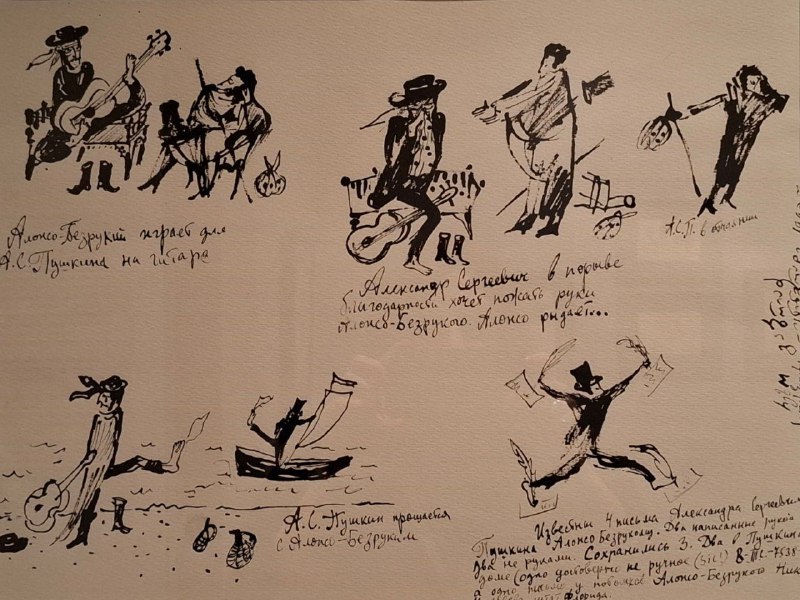 Алонсо-Безрукий играет для
А.С. Пушкина на гитаре
Александр Сергеевич в порыве
благодарности хочет пожать руки
Алонсо-Безрукого. Алонсо рыдает...
А.С.П. в отчаянии
А.С. Пушкин прощается
с Алонсо-Безруким
Известны 4 письма Александра Сергеевича
Пушкина Алонсо Безрукому. Два написанные рукой
два не руками. Сохранились 3. Два в Пушкинском
доме (одно достоверно не ручное (sic!)
а одно письмо у потомков Алонсо-Безрукого
штат Флорида.